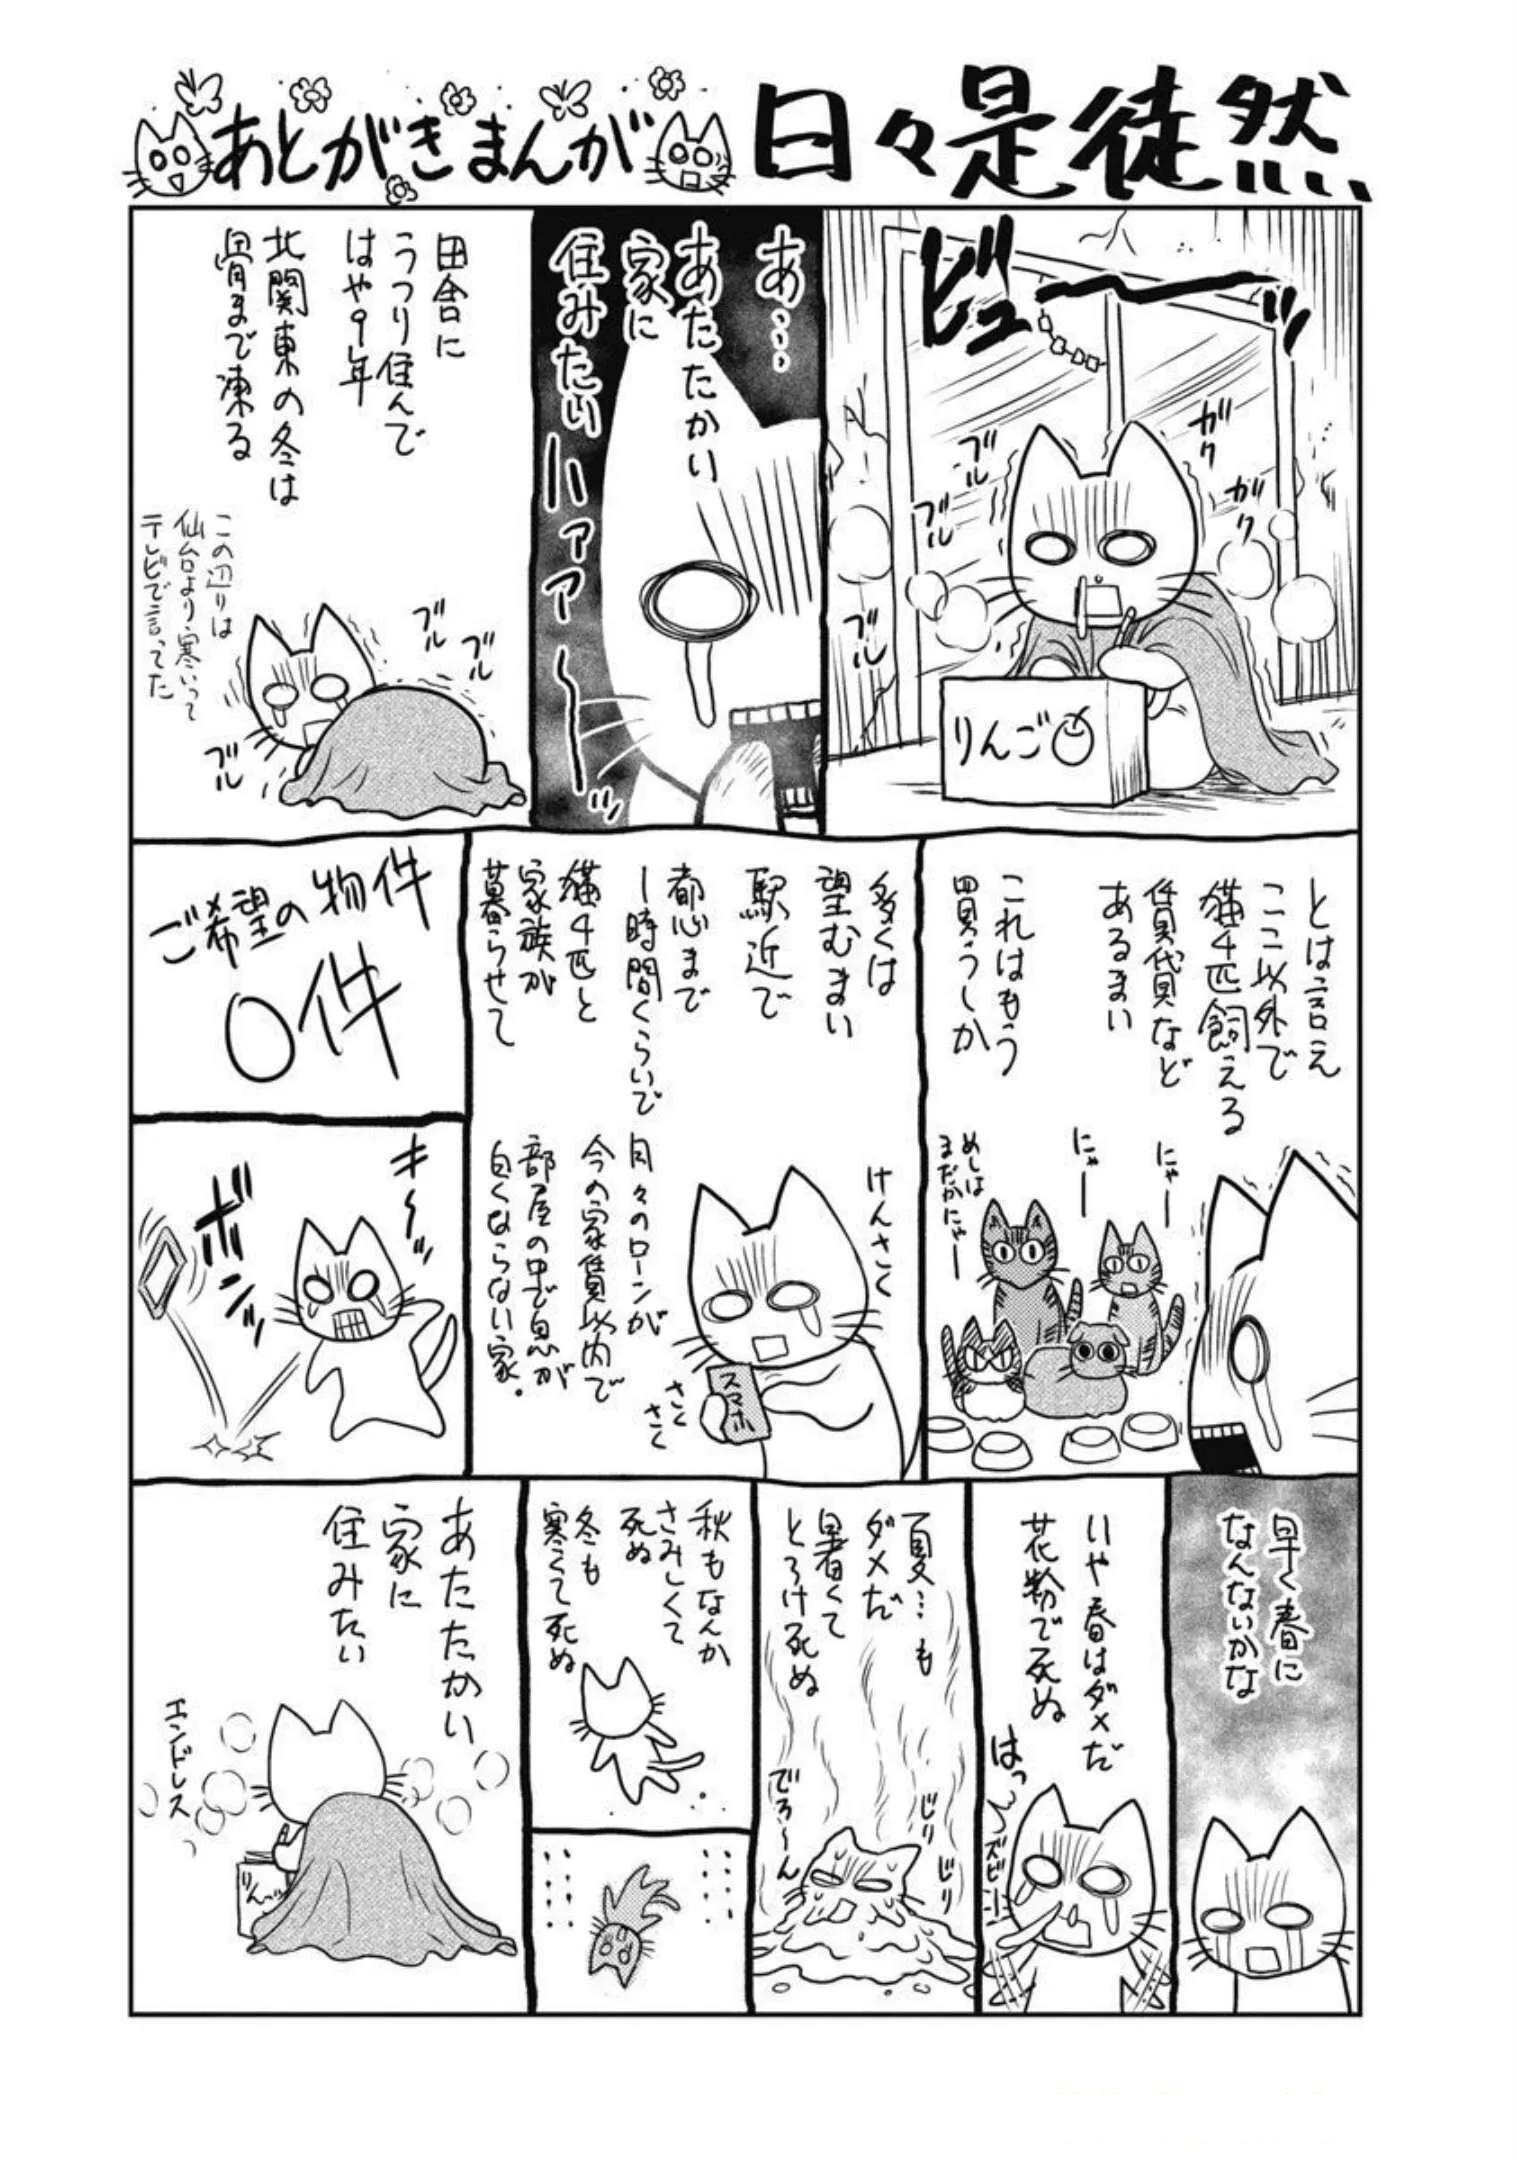 あとがきまんが 日々是徒然
ビュー
ーッ
ガク
ガク
ブル
ブル
ブル
りんご
あ…
あたたかい
家に
住みたい
ハァァァ〜〜ッ
田舎に
うつり住んで
はや9年
北関東の冬は
骨まで凍る
この辺りは
仙台より寒いって
テレビで言ってた
ブル
ブル
ブル
とは言え
ここ以外で
猫4匹飼える
賃貸など
あるまい
これはもう
買うしか
にゃー
にゃー
めしは
まだかにゃー
多くは
望むまい
駅近で
都心まで
1時間くらいで
猫4匹と
家族が
暮らせて
月々のローンが
今の家賃以内で
部屋の中で息が
白くならない家。
けんさく
さく
さく
スマホ
ご希望の物件
0件
キーッ
ボンッ
早く春に
なんないかな
いや春はダメだ
花粉で死ぬ
はっ
ズビー
夏…も
ダメだ
暑くて
とろけ死ぬ
でろ〜ん
じり
じり
秋もなんか
さみしくて
死ぬ
冬も
寒くて死ぬ
あたたかい
家に
住みたい
エンドレス
りん